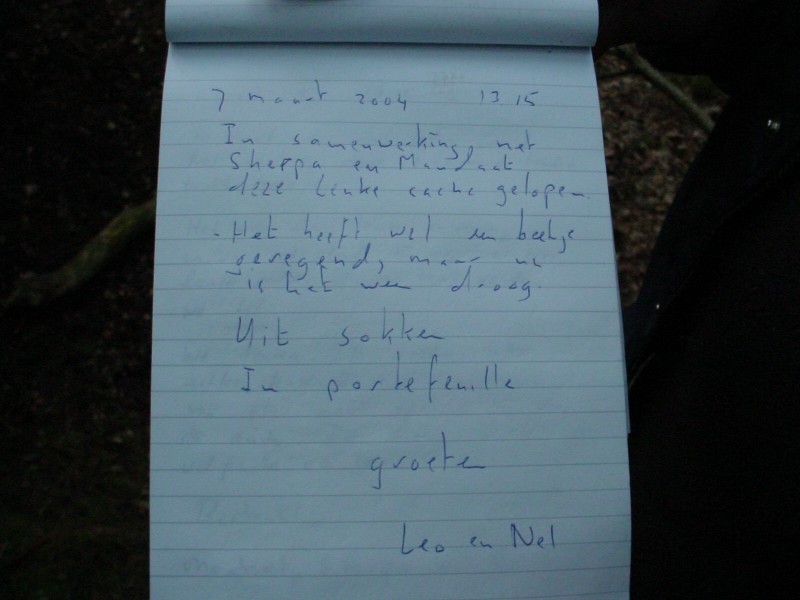 7 maart 2004 13 15
In samenwerking met
Sherpa en Mandaat
deze leuke cache gelopen.
- Het heeft wel een beetje
geregend, maar nu
is het weer droog.
Uit sokken
In portefeuille
groeten
Leo en Nel